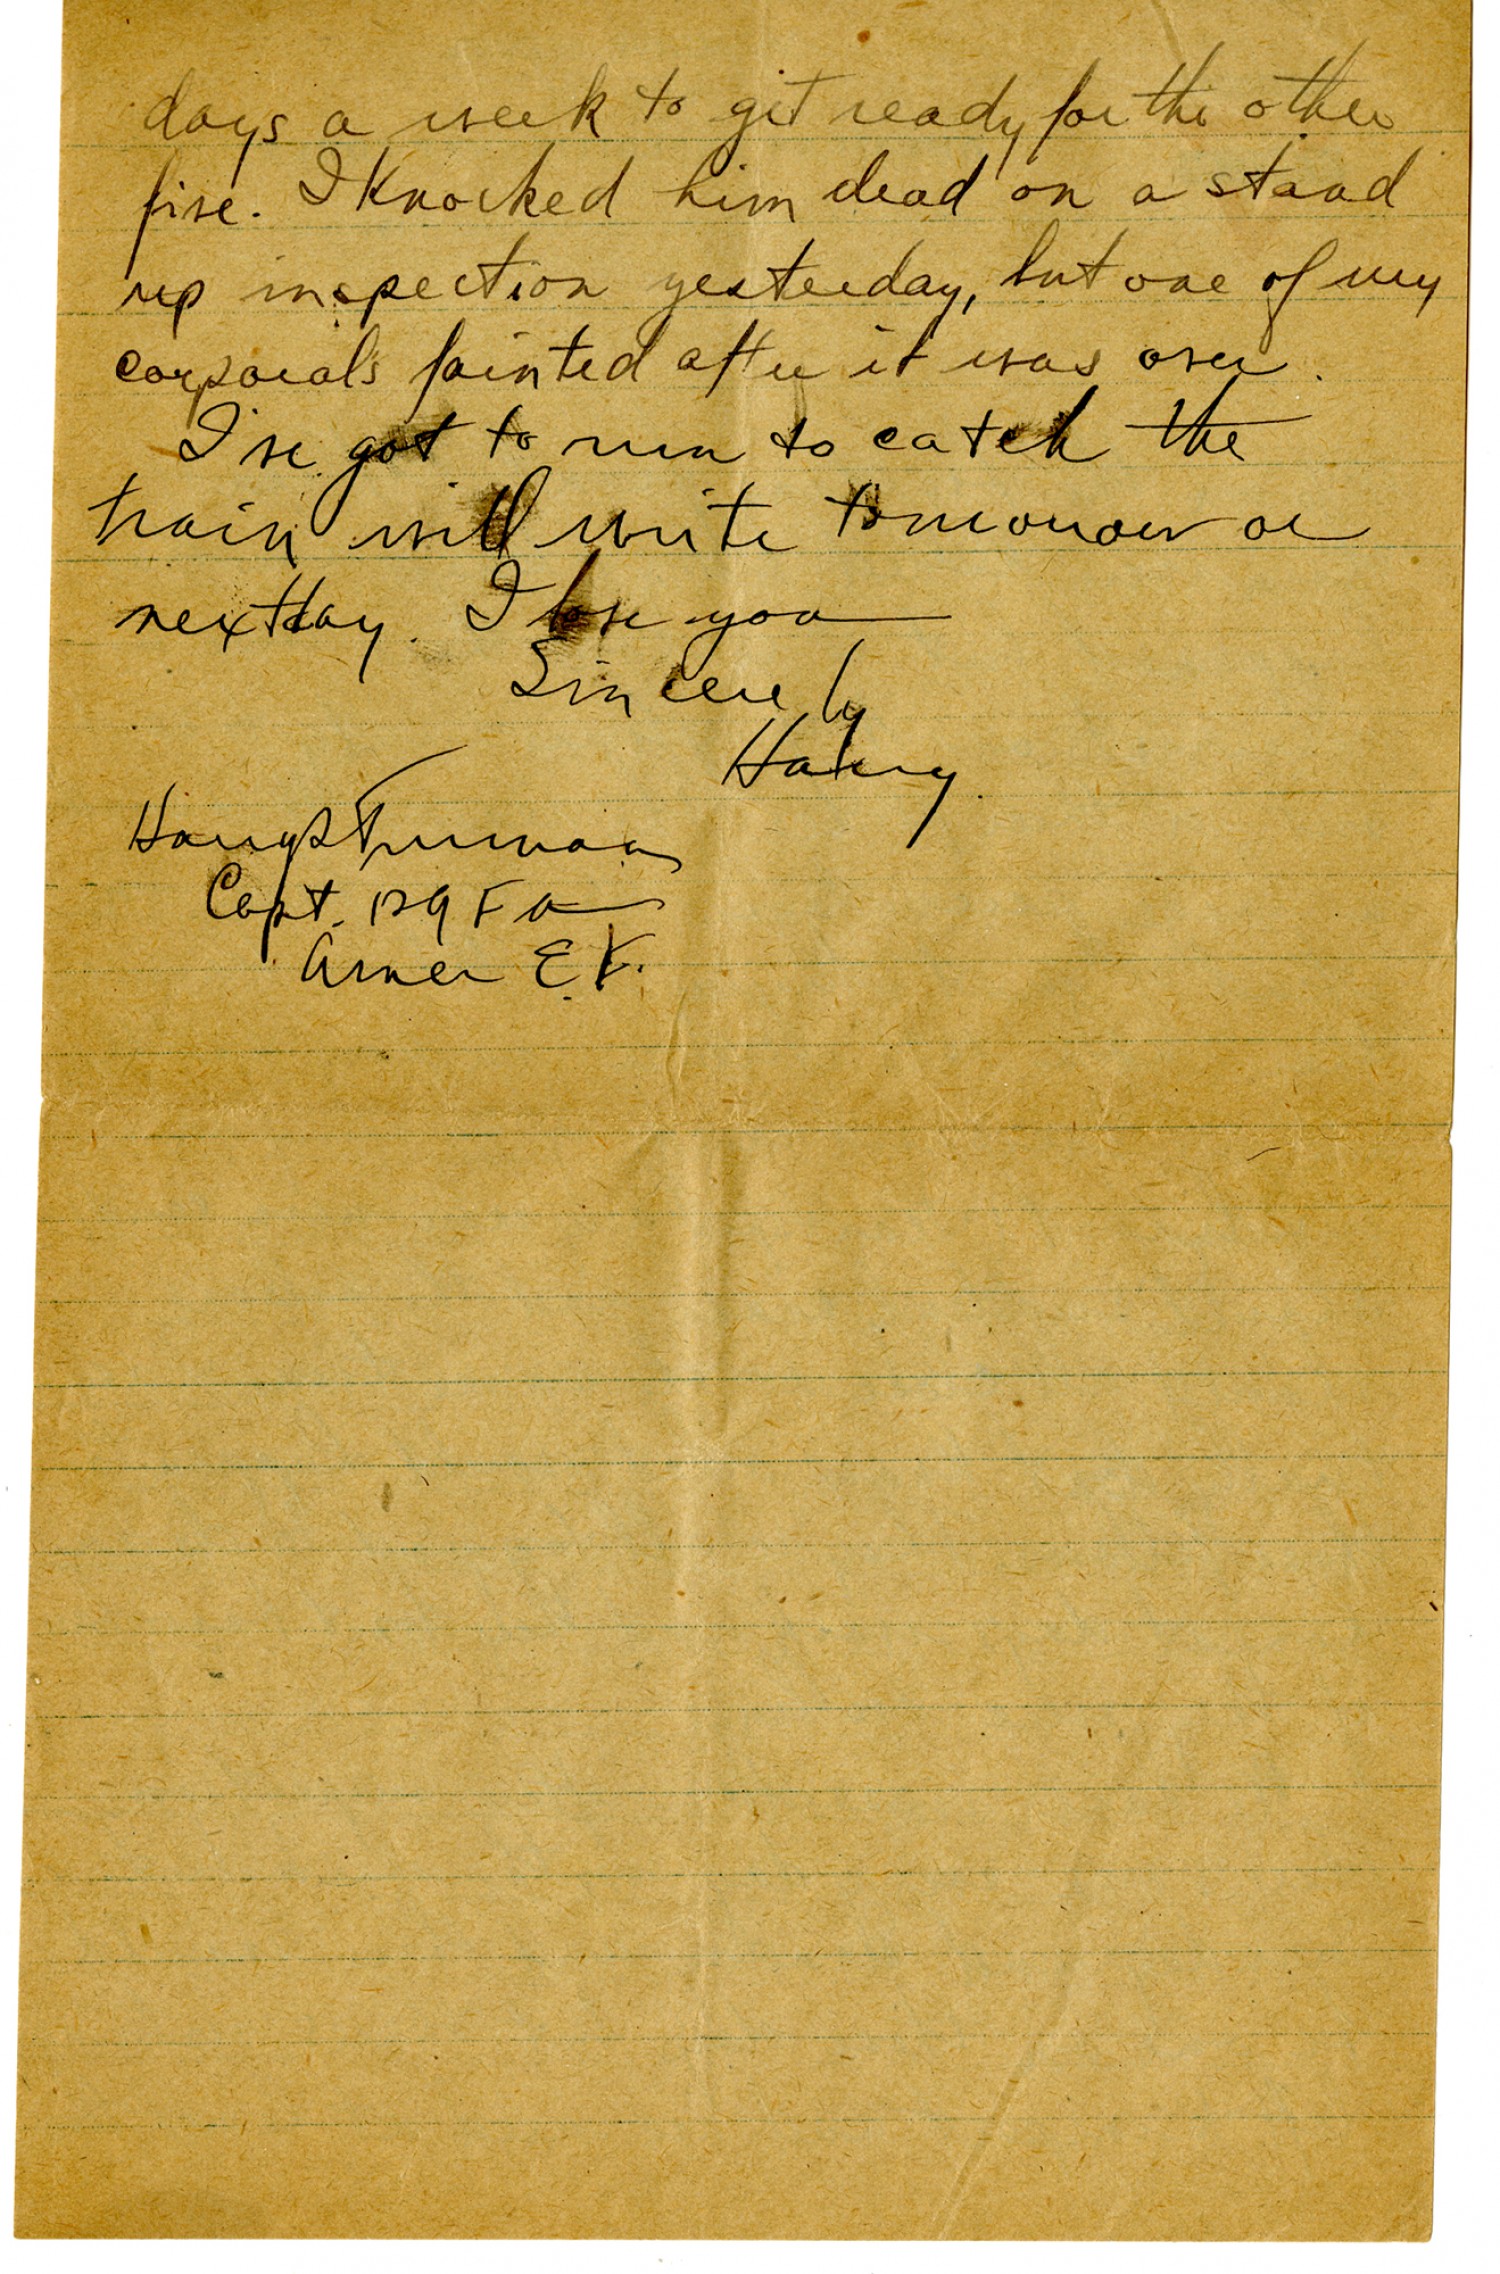 days a week to get ready for the other
five. I Knocked him dead on a stand
up inspection yesterday, but one of my
corporals fainted after it was over.
I've got to run to catch the
train will write tomorrow or
next day. I love you
Sincerely
Harry.
Harry S Truman
Capt. 129 F A
Amer E.F.